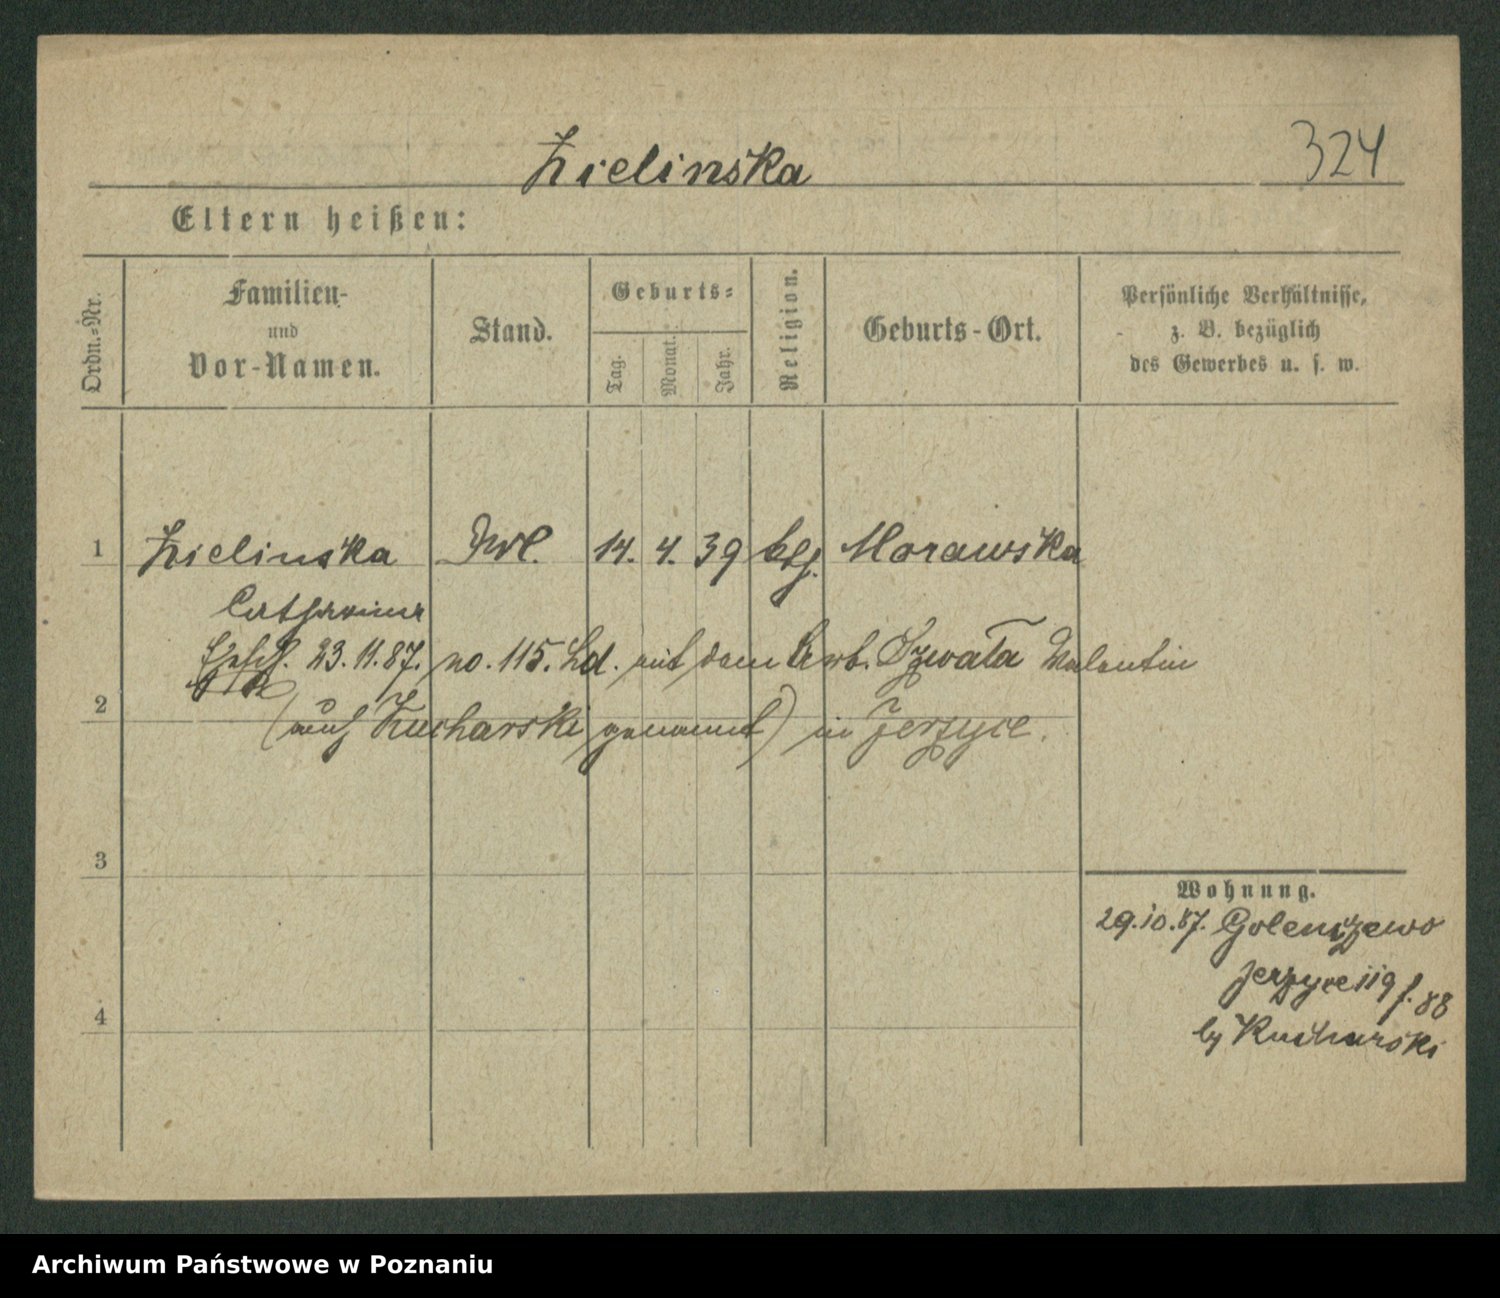 Zielinska
324
Eltern heißen:
Ordn.-Nr.
Familien-
und
Vor-Namen.
Stand.
Geburts-
Tag.
Monat.
Jahr.
Religion.
Geburts-Ort.
Persönliche Verhältnisse,
z. B. bezüglich
des Gewerbes u. s. w.
1
Zielinska
14.
4.
39
ktf.
Morawska
Catharina
23.11.87. no. 115. mit dem Arb. Szwata Valentin
2
(auch Kucharski genannt) in Jerzyce.
3
Wohnung.
29.10.87. Golenczewo
Jerzyce 119 f. 88
by Kucharski
4
Archiwum Państwowe w Poznaniu